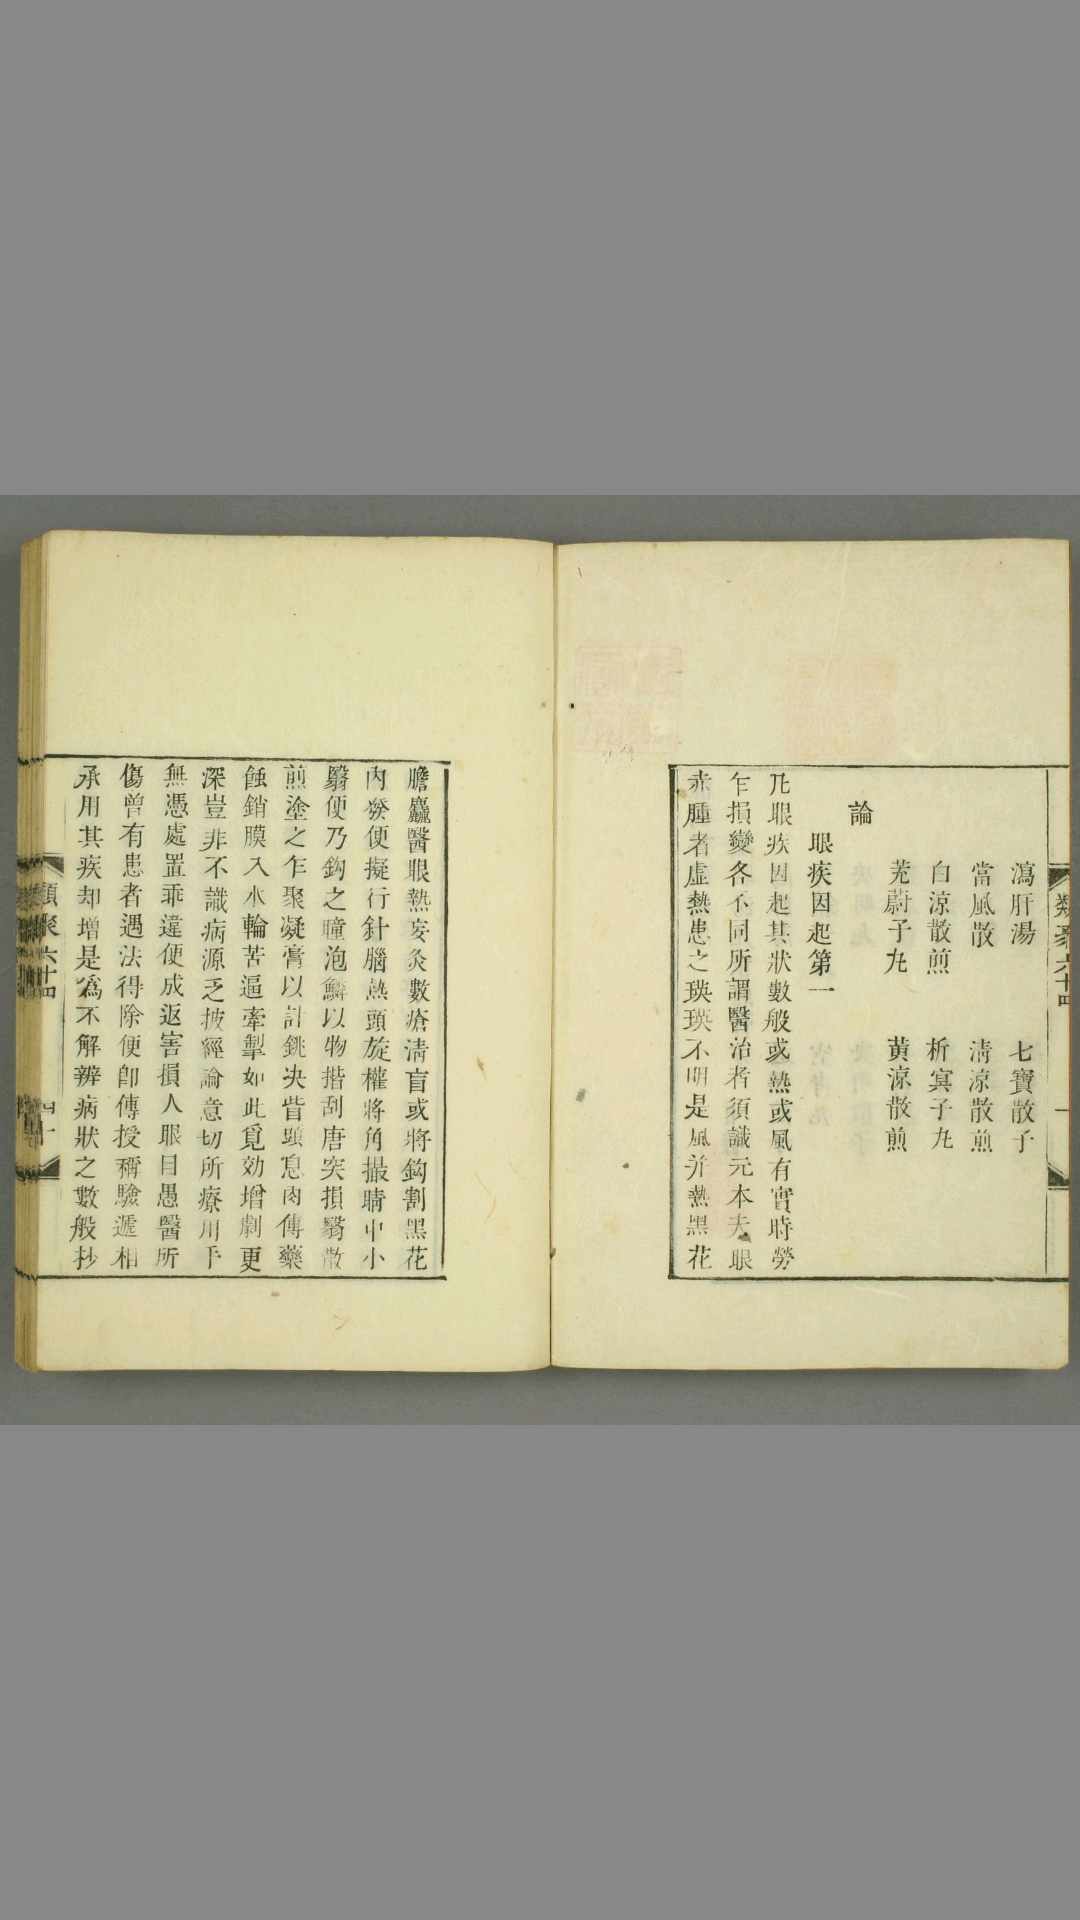 類聚六十四
瀉肝湯 七寶散子
當風散 淸涼散煎
白涼散煎 析蓂子丸
茺蔚子丸 黃涼散煎
論
眼疾因起第一
凡眼疾因起其狀數般或熱或風有實時勞
乍損變各不同所謂醫治者須識元本夫眼
赤腫者虛熱患之瑛瑛不明是風并熱黑花
膽麤醫眼熱妄灸數瘡淸盲或將鈎割黑花
內發便擬行針腦熱頭旋權將角撮睛中小
翳便乃鈎之瞳泡鱗以物揩刮唐突損翳散
煎塗之乍聚凝膏以計銚決眥頭息肉傅藥
蝕銷膜入水輪苦逼牽掣如此覓効增劇更
深豈非不識病源乏披經論意切所療用手
無憑處置乖違便成返害損人眼目愚醫所
傷曾有患者遇法得除便卽傳授稱驗遞相
承用其疾却增是爲不解辨病狀之數般抄
類聚六十四